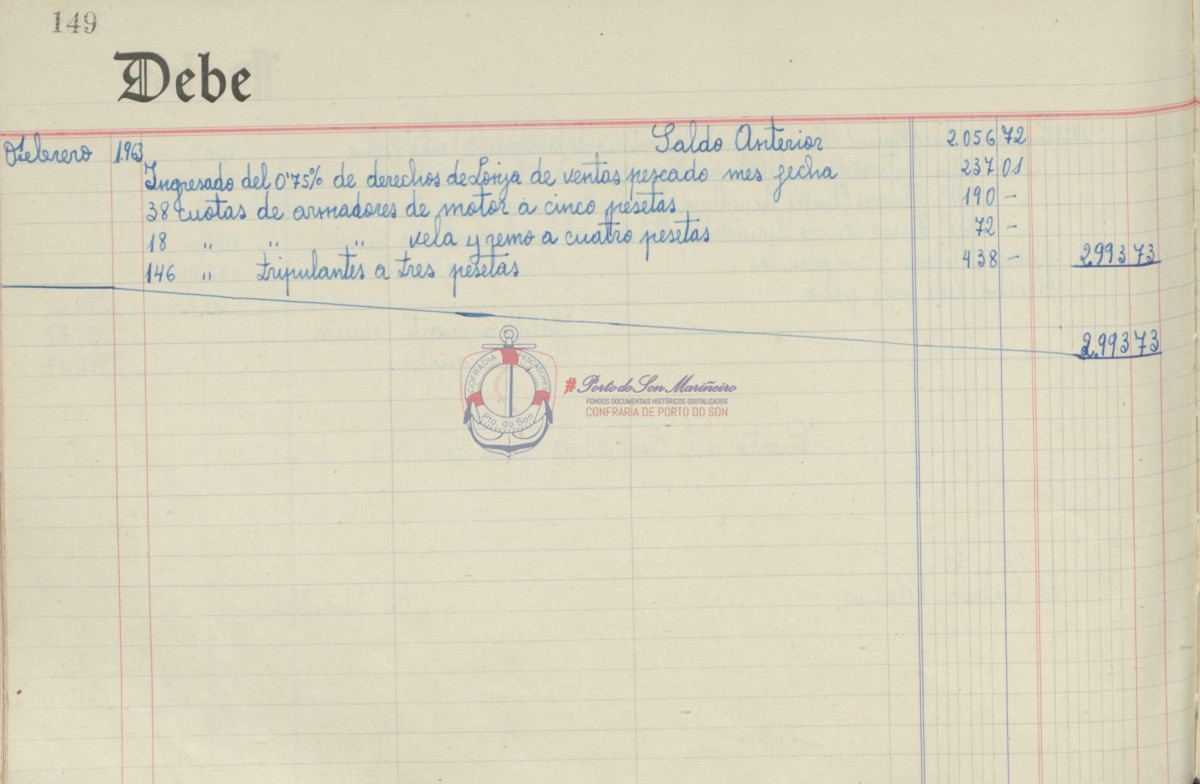 149
Debe
Saldo Anterior 2.056 72
Febrero 1.963
Ingresado del 0'75% de derechos de Lonja de ventas pescado mes fecha 237 01
38 cuotas de armadores de motor a cinco pesetas 190 -
18 " " " vela y remo a cuatro pesetas 72 -
146 " tripulantes a tres pesetas 438 - 2993 73
2.993 73
COFRADIA PESCADORES
Pto. do Son
#Porto do Son Mariñeiro
FONDOS DOCUMENTAIS HISTÓRICOS DIXITALIZADOS
CONFRARÍA DE PORTO DO SON